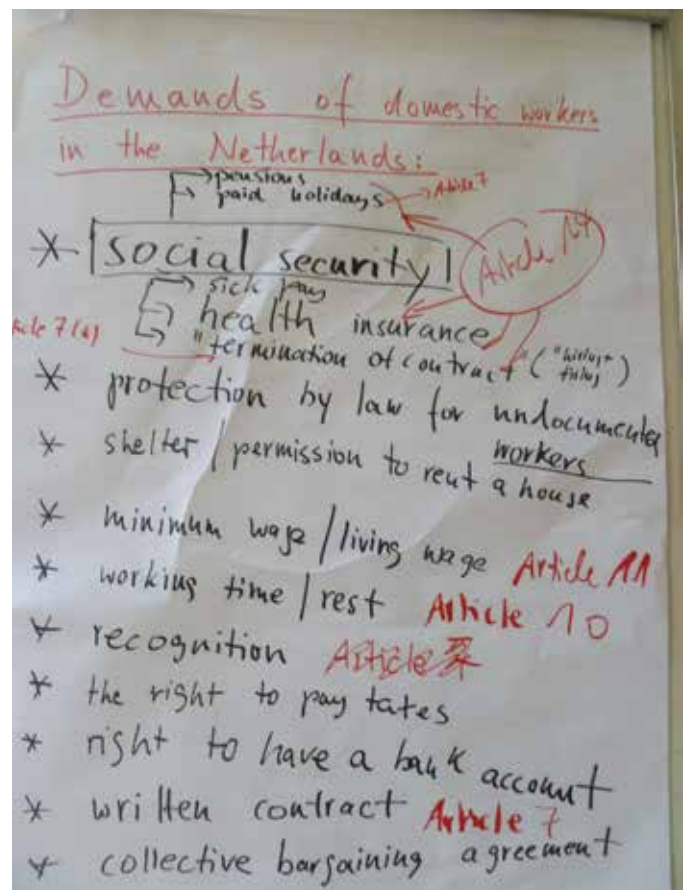 Demands of domestic workers
in the Netherlands:
pensions
paid holidays Article 7
* social security Article 14
sick pay
health insurance
Article 7(k) "termination of contract" ("hiring + firing)
* protection by law for undocumented
workers
* shelter / permission to rent a house
* minimum wage / living wage Article 11
* working time / rest Article 10
* recognition Article
* the right to pay taxes
* right to have a bank account
* written contract Article 7
* collective bargaining agreement